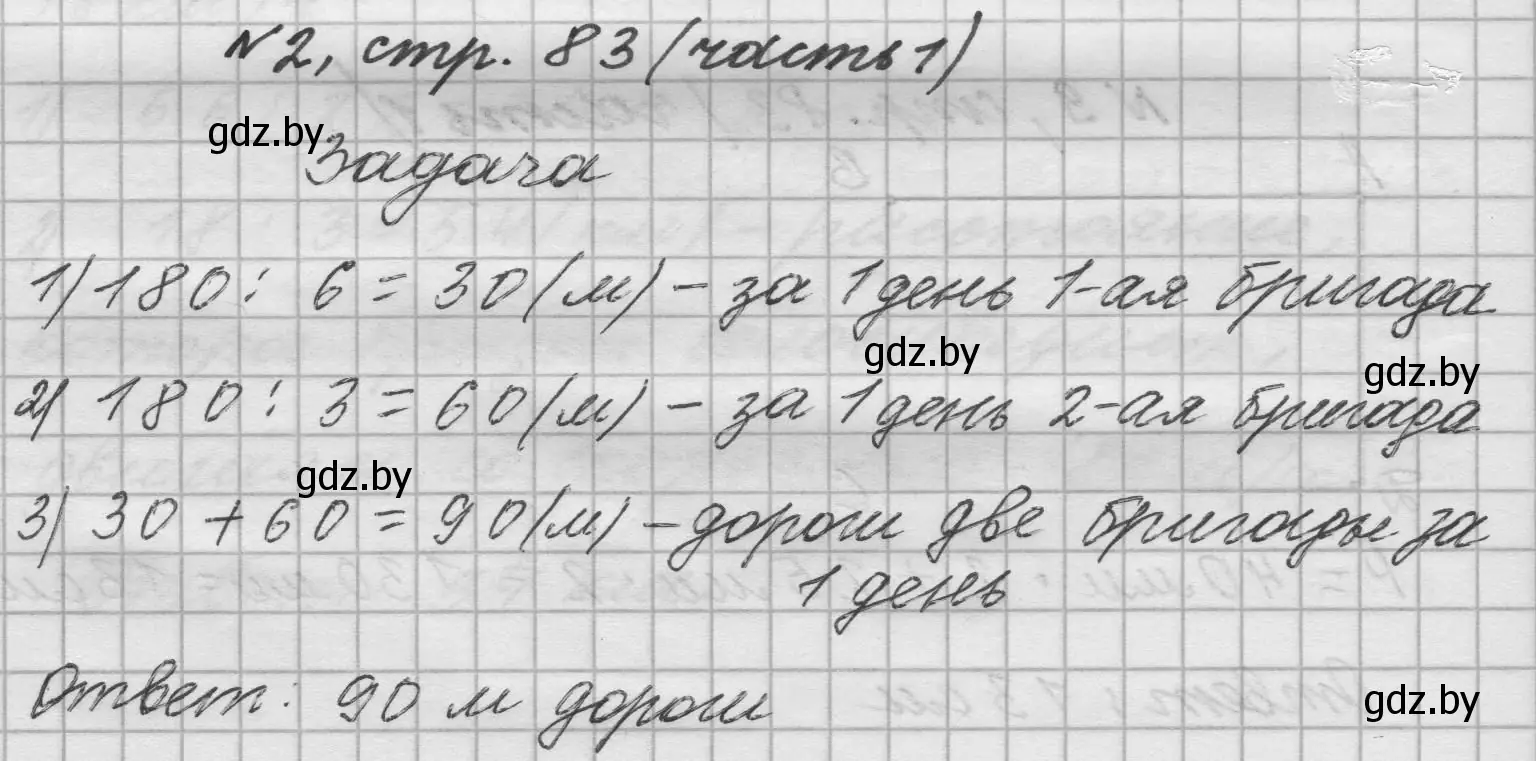 №2, стр. 83 (часть 1)
gdz.by
Задача
1) 180 : 6 = 30 (м) – за 1 день 1-ая бригада
gdz.by
gdz.by
2) 180 : 3 = 60 (м) – за 1 день 2-ая бригада
gdz.by
3) 30 + 60 = 90 (м) – дороги две бригады за
1 день
Ответ: 90 м дороги
gdz.by